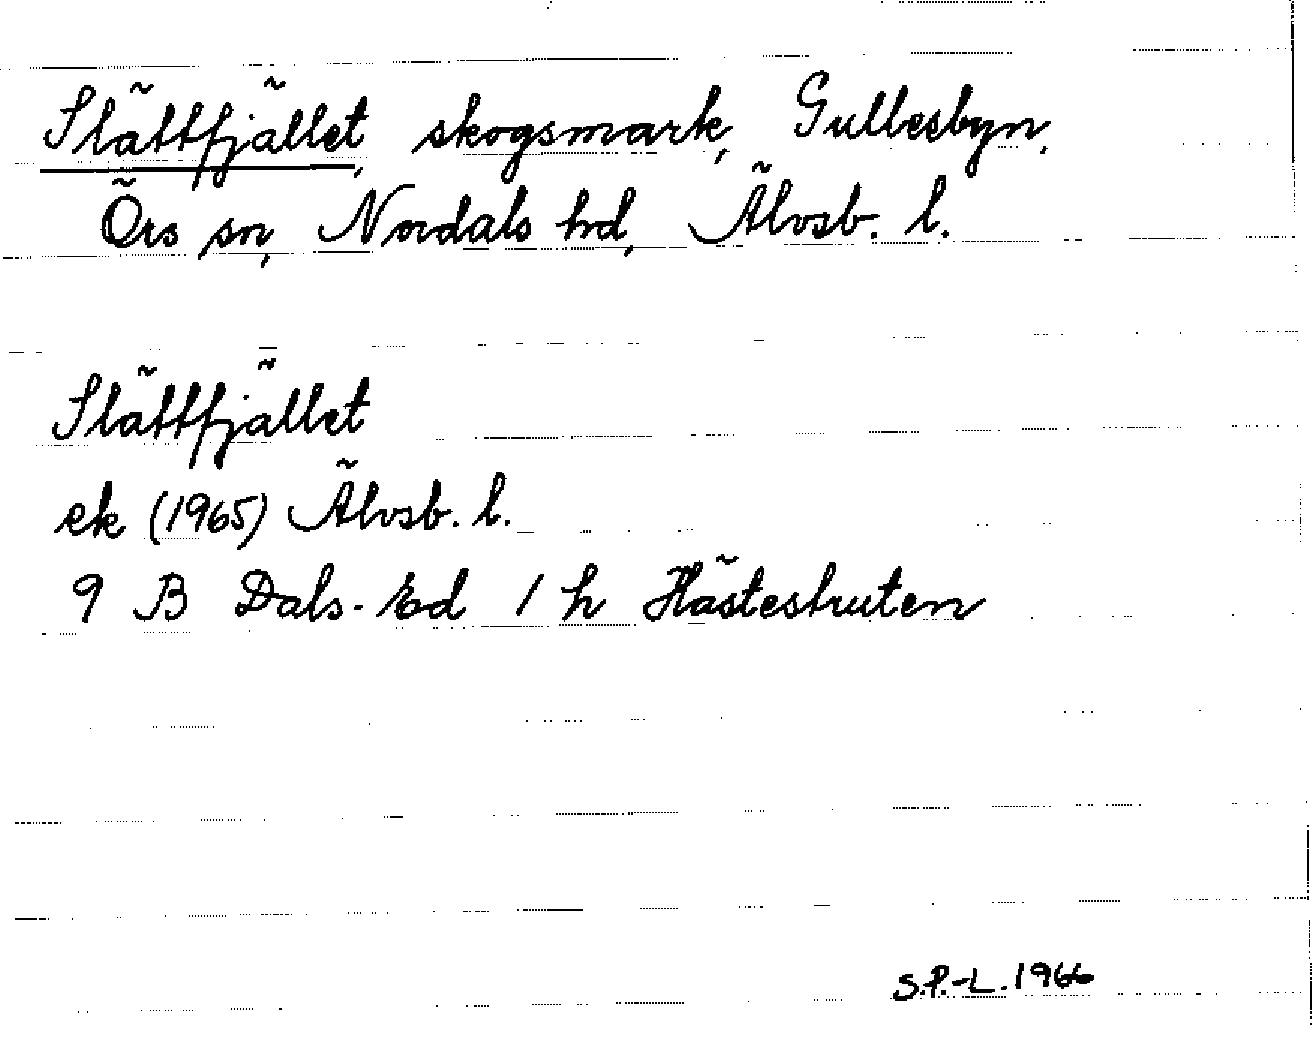 Slättfjället, skogsmark, Gullesbyn,
Örs sn, Nordals hd, Älvsb. l.
Slättfjället
ek (1965) Älvsb. l.
9 B Dals-Ed 1 h Hästestruten
S.P.-L. 1966